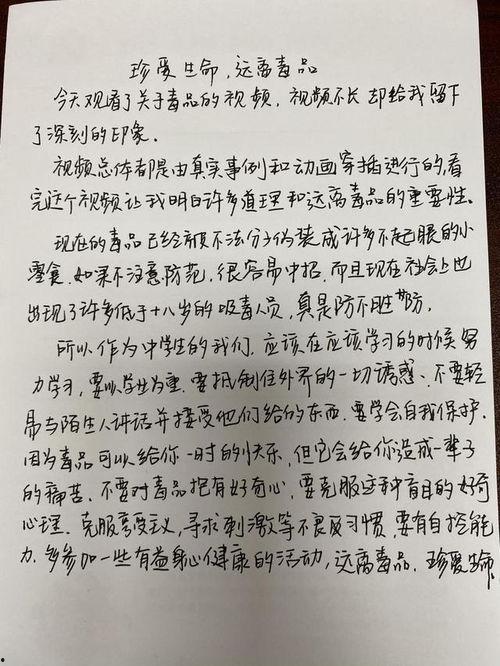 珍爱生命,远离毒品
今天观看了关于毒品的视频,视频不长却给我留下
了深刻的印象。
视频总体都是由真实事例和动画穿插进行的,看
完这个视频让我明白许多道理和远离毒品的重要性。
现在的毒品已经被不法分子伪装成许多不起眼的小
零食.如果不注意防范,很容易中招,而且现在社会上也
出现了许多低于十八岁的吸毒人员,真是防不胜防。
所以作为中学生的我们,应该在应该学习的时候努
力学习,要以学业为重.要抵制住外界的一切诱惑、不要轻
易与陌生人讲话并接受他们给的东西.要学会自我保护.
因为毒品可以给你一时的快乐,但它会给你造成一辈子
的痛苦、不要对毒品抱有好奇心,要克服这种盲目的好奇
心理、克服享受主义,寻求刺激等不良习惯,要有自控能
力.多参加一些有益身心健康的活动,远离毒品、珍爱生命